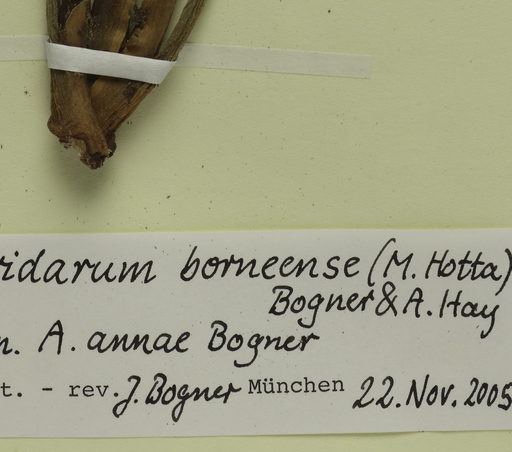 ridarum borneense (M. Hotta)
Bogner & A. Hay
n. A. annae Bogner
t. - rev. J. Bogner München 22. Nov. 2005